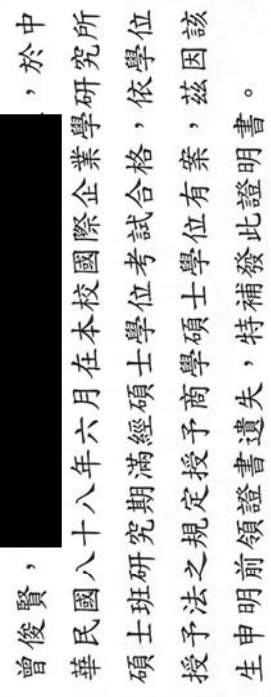 曾俊賢，，於中
華民國八十八年六月在本校國際企業學研究所
碩士班研究期滿經碩士學位考試合格，依學位
授予法之規定授予商學碩士學位有案，茲因該
生申明前領證書遺失，特補發此證明書。